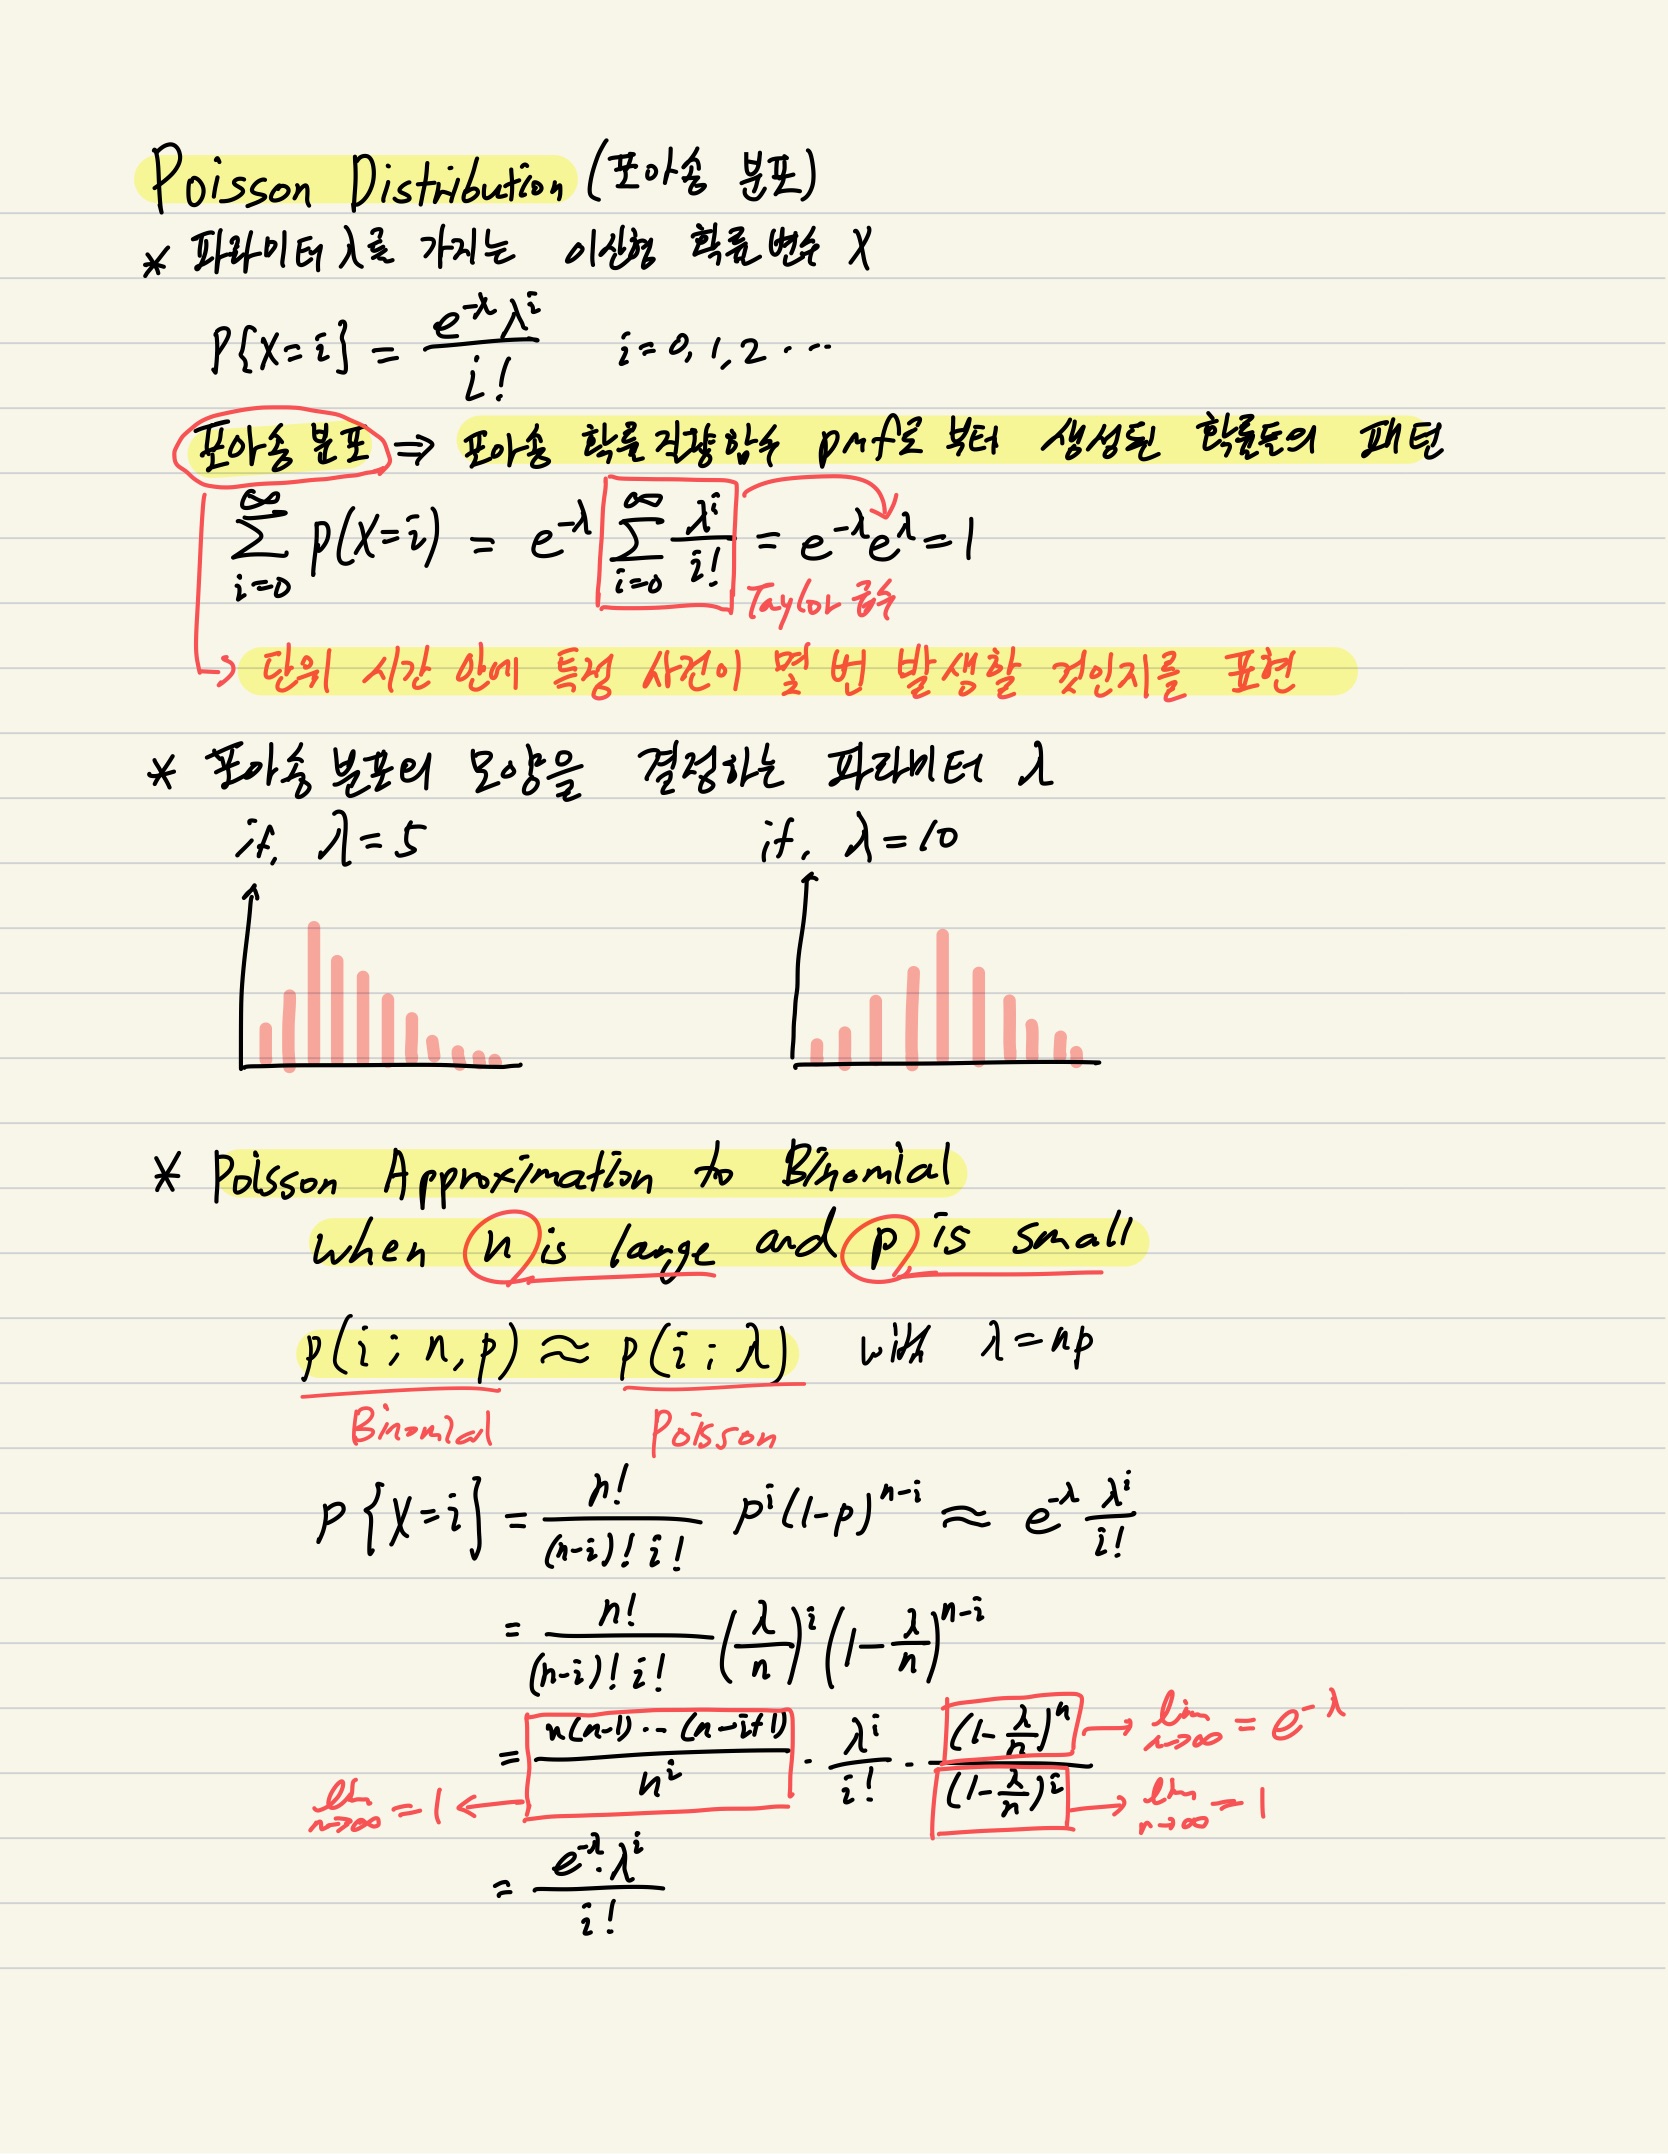 Poisson Distribution (포아송 분포)
* 파라미터 λ를 가지는 이산형 확률변수 X
P{X=i} = e^-λ λ^i / i!   i=0,1,2 ...
포아송 분포 ⇒ 포아송 확률질량함수 pmf로 부터 생성된 확률들의 패턴
∑_{i=0}^∞ p(X=i) = e^-λ ∑_{i=0}^∞ λ^i / i! = e^-λ e^λ = 1
Taylor 급수
→ 단위 시간 안에 특정 사건이 몇 번 발생할 것인지를 표현
* 포아송 분포의 모양을 결정하는 파라미터 λ
if, λ=5   if, λ=10
* Poisson Approximation to Binomial
when n is large and p is small
p(i; n, p) ≈ p(i; λ) with λ=np
Binomial   Poisson
P{X=i} = n! / (n-i)! i! p^i (1-p)^{n-i} ≈ e^-λ λ^i / i!
= n! / (n-i)! i! (λ/n)^i (1-λ/n)^{n-i}
= n(n-1)...(n-i+1) / n^i · λ^i / i! · (1-λ/n)^n / (1-λ/n)^i
→ lim_{n→∞} = e^-λ
lim_{n→∞} = 1 ←   → lim_{n→∞} = 1
= e^-λ · λ^i / i!